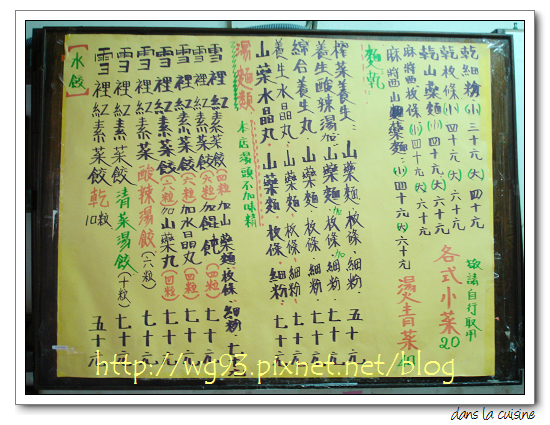 麵乾
乾細粉(小)三十元(大)四十元
乾枚條(小)四十元(大)六十元
乾山藥麵(小)四十元(大)六十元
麻醬枚條(小)四十元(大)六十元
麻醬山藥麵(小)四十元(大)六十元
敬請自行取用
各式小菜20
燙青菜
湯麵類
本店湯頭不加味精
榨菜養生:山藥麵、枚條、細粉、五十元
養生酸辣湯加山藥麵、枚條加細粉、七十元
綜合養生丸、山藥麵、枚條、細粉、七十元
養生水晶丸、山藥麵、枚條、細粉、七十元
山藥水晶丸、山藥麵、枚條、細粉、七十元
【水餃】
雪裡紅素菜餃(四粒)加山藥麵枚條、細粉七十元
雪裡紅素菜餃(六粒)加餛飩(四粒)七十元
雪裡紅素菜餃(六粒)加水晶丸(四粒)七十元
雪裡紅素菜餃(六粒)加山藥丸(四粒)七十元
雪裡紅素菜餃酸辣湯餃(六粒)七十元
雪裡紅素菜餃青菜湯餃(十粒)七十元
雪裡紅素菜餃乾10粒五十元
http://wg93.pixnet.net/blog
dans la cuisine